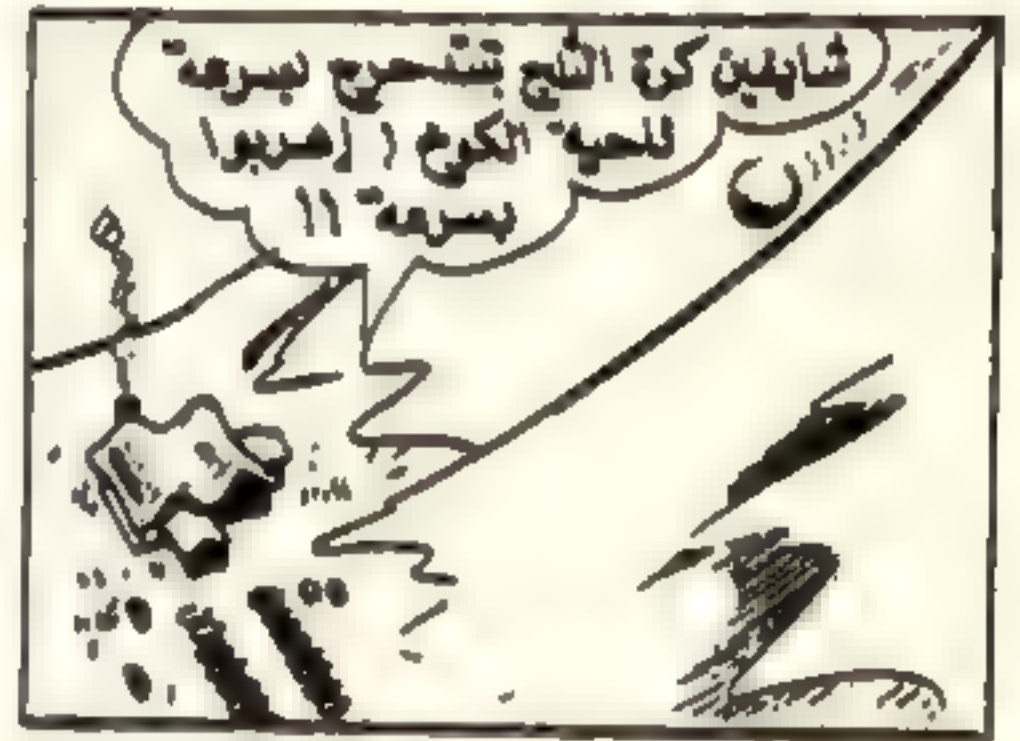 شايفين كرة الثلج بتتدحرج بسرعة
لناحية الكوخ ! اهربوا
بسرعة !!